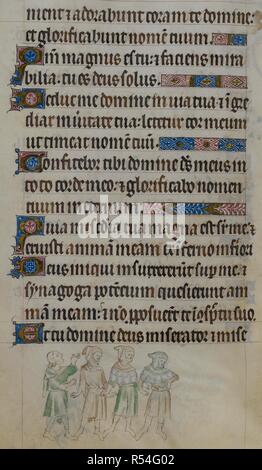 nient et adorabunt coram te domine:
et glorificabunt nomen tuum.
Qm magnus es tu et faciens mira
bilia: tu es deus solus.
Deduc me domine in uia tua et ingre
diar in ueritate tua: letetur cor meum
ut timeat nomen tuum.
Confitebor tibi domine deus meus in
toto corde meo: et glorificabo nomen
tuum in
Quia mia tua magna est sr me: et
eruisti animam meam ex inferno inferiori
Deus iniqui insurrexerunt sup me: et
synagoga potentium quesierunt ani
mam meam: et no proposuert te in suo.
Et tu domine deus miserator et mise
alamy
Image ID: R54G02
www.alamy.com